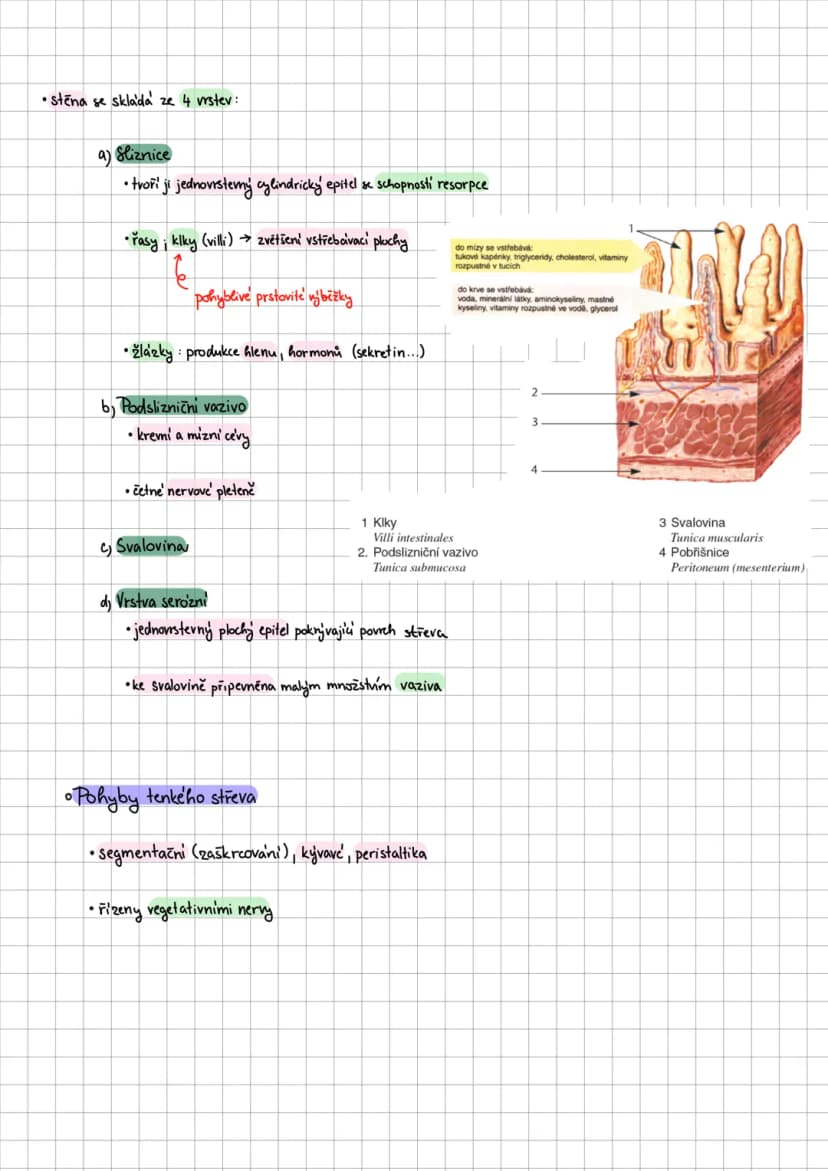 • stěna se skládá ze 4 vrstev:
a) Sliznice
• tvoří ji jednovrstevný cylindrický epitel se schopností resorpce
• řasy ; klky (villi) → zvětšení vstřebávací plochy
pohyblivé prstovité výběžky
• žlázky : produkce hlenu, hormonů (sekretin...)
b) Podslizniční vazivo
• krevní a mízní cévy
• četné nervové pleteně
c) Svalovina
d) Vrstva serózní
• jednovrstevný plochý epitel pokrývající povrch střeva
• ke svalovině připevněna malým množstvím vaziva
do mízy se vstřebává:
tukové kapénky, triglyceridy, cholesterol, vitaminy
rozpustné v tucích
do krve se vstřebává:
voda, minerální látky, aminokyseliny, mastné
kyseliny, vitaminy rozpustné ve vodě, glycerol
1
2
3
4
1 Klky
Villi intestinales
2. Podslizniční vazivo
Tunica submucosa
3 Svalovina
Tunica muscularis
4 Pobřišnice
Peritoneum (mesenterium)
Pohyby tenkého střeva
• segmentační (zaškrcování), kývavé, peristaltika
• řízeny vegetativními nervy